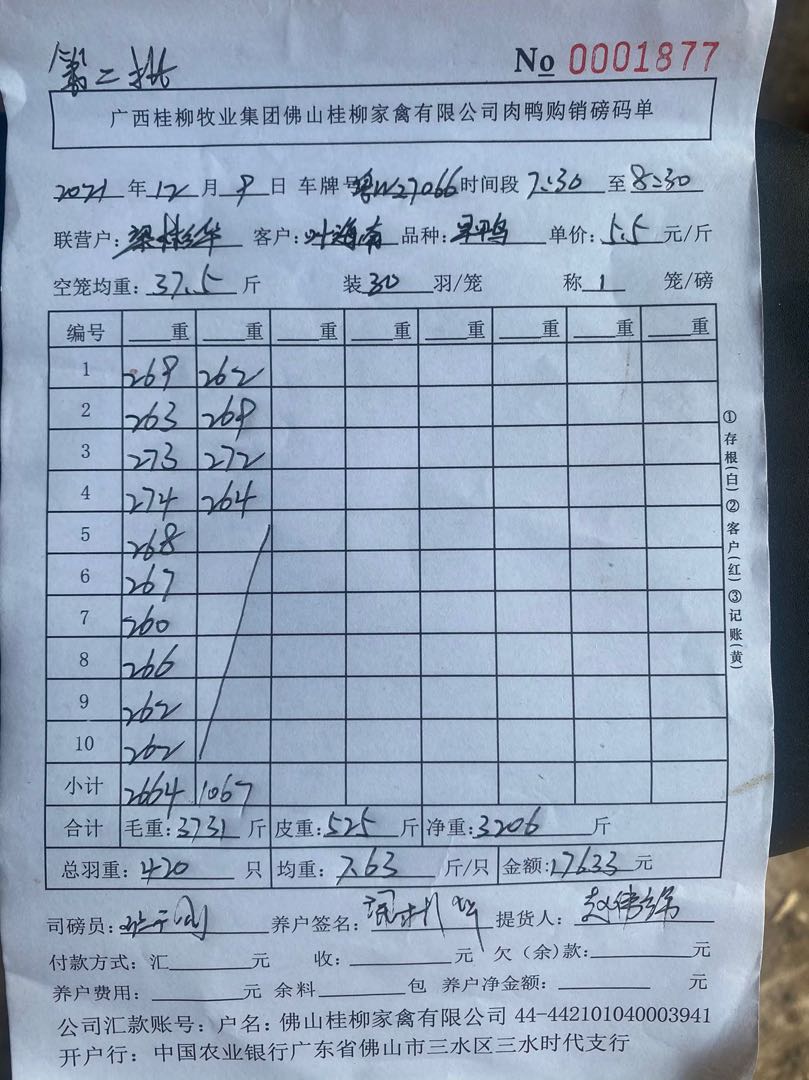 第二批
No 0001877
广西桂柳牧业集团佛山桂柳家禽有限公司肉鸭购销磅码单
2021 年 12 月 9 日 车牌号粤W27066 时间段 7:30 至 8:30
联营户: 梁桂华 客户: 叶海南 品种: 旱鸭 单价: 5.5 元/斤
空笼均重: 37.5 斤 装 30 羽/笼 称 1 笼/磅
编号 重 重 重 重 重 重 重 重
1 269 262
2 263 269
3 273 272
4 274 264
5 268
6 267
7 260
8 266
9 262
10 262
小计 2664 1067
合计 毛重: 3731 斤 皮重: 525 斤 净重: 3206 斤
总羽重: 420 只 均重: 7.63 斤/只 金额: 17633 元
司磅员: 养户签名: 提货人:
付款方式: 汇 元 收: 元 欠(余)款: 元
养户费用: 元 余料 包 养户净金额: 元
公司汇款账号: 户名: 佛山桂柳家禽有限公司 44-442101040003941
开户行: 中国农业银行广东省佛山市三水区三水时代支行
①存根(白)②客户(红)③记账(黄)